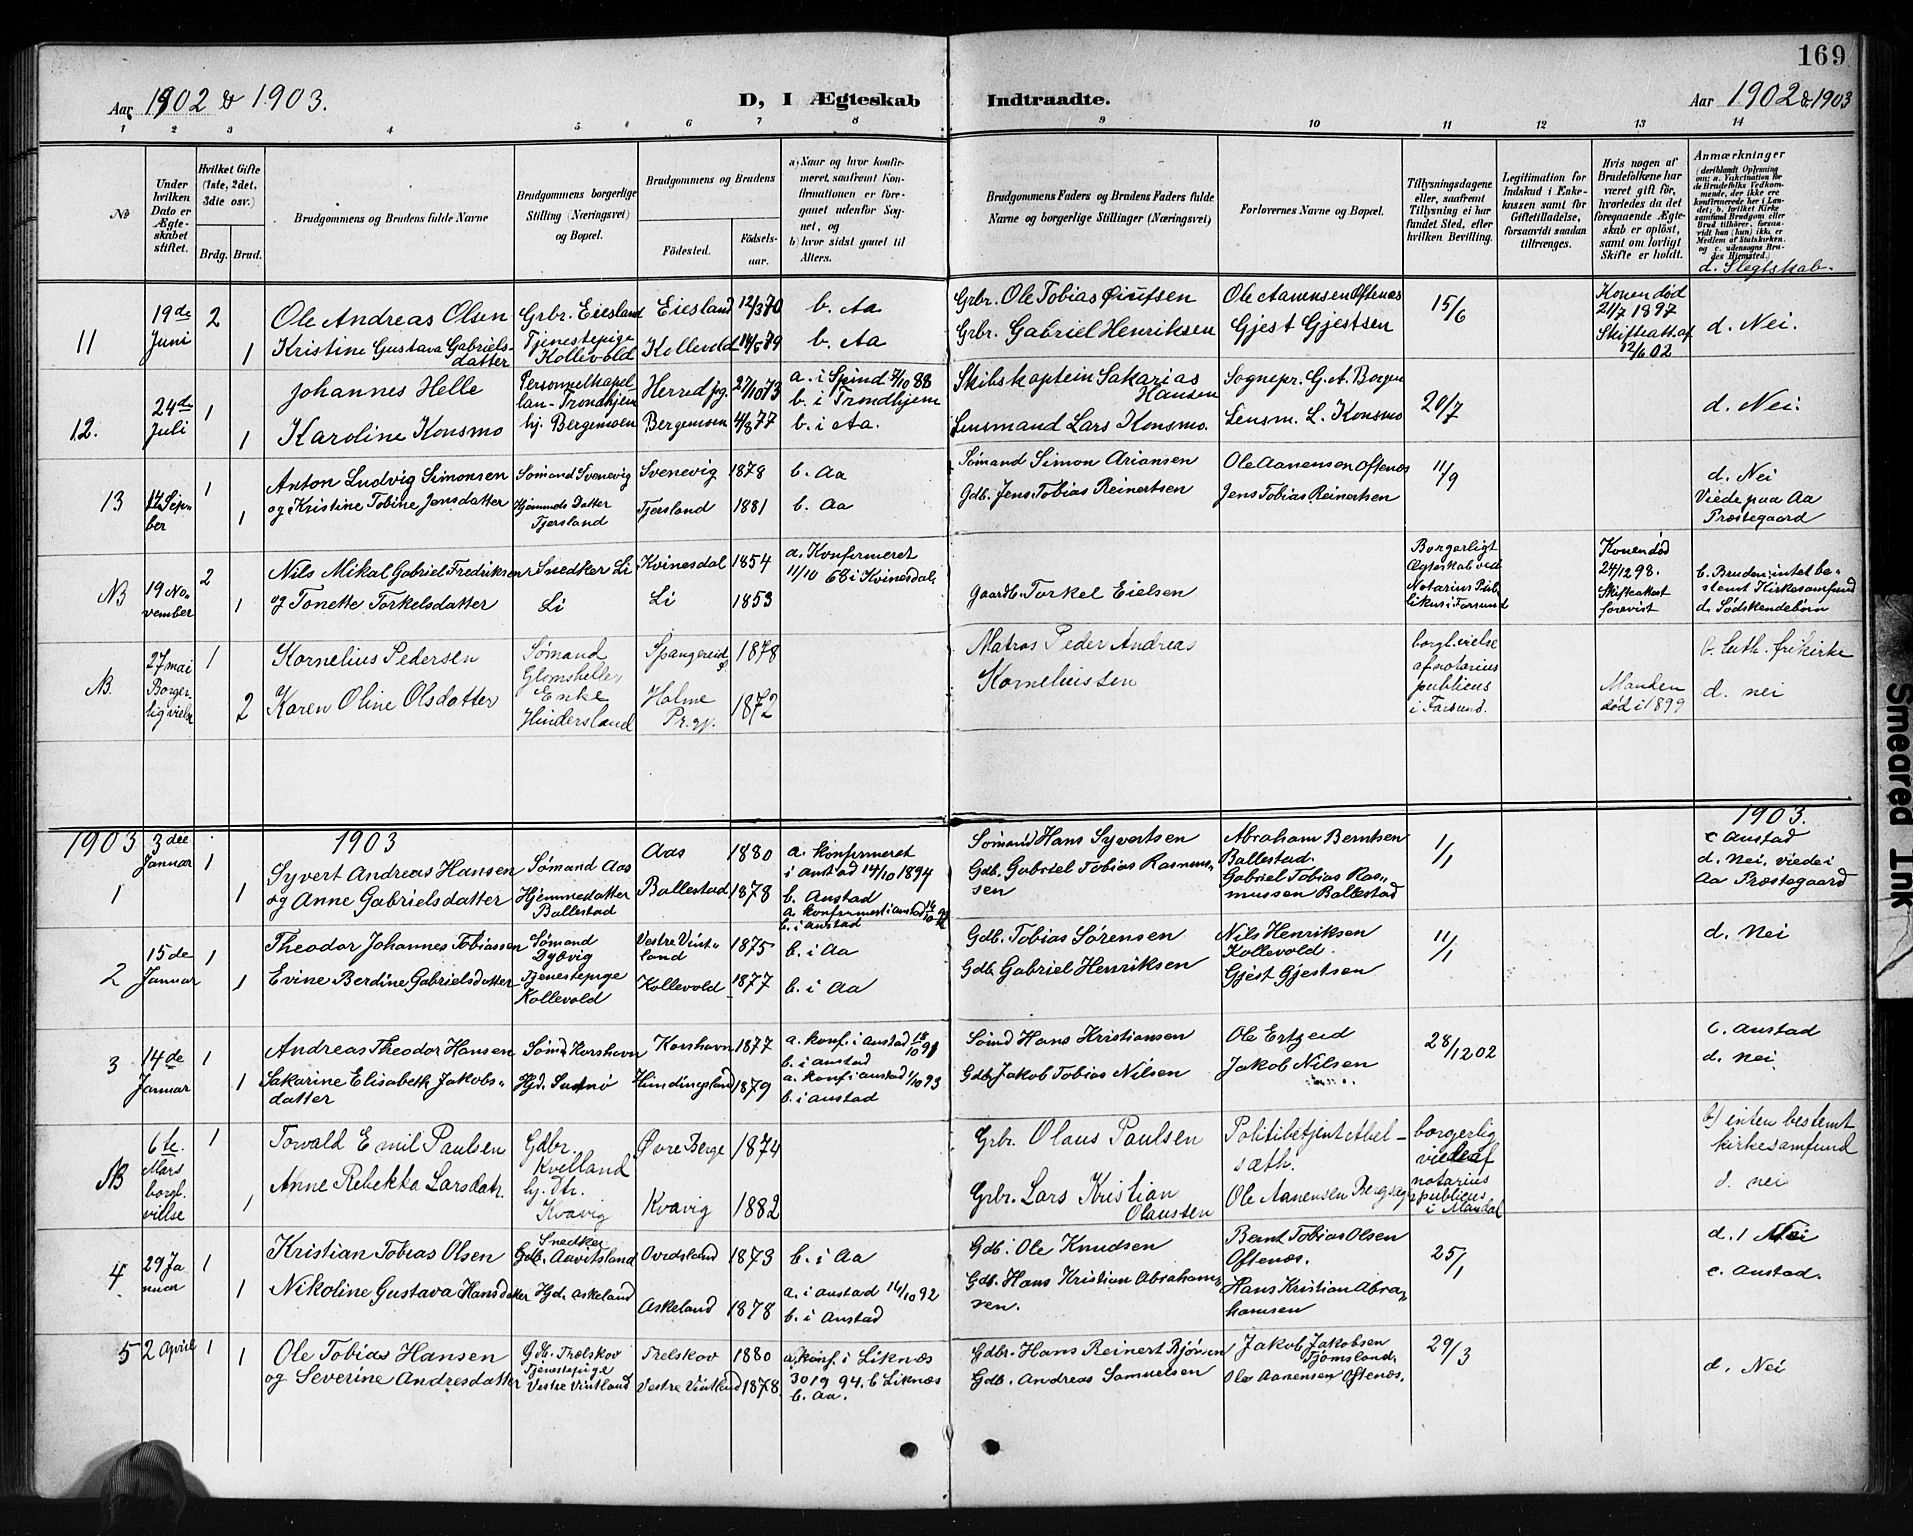 169
Aar 1902 & 1903.
D, I Ægteskab Indtraadte.
Aar 1902 & 1903
1 2 3 4 5 6 7 8 9 10 11 12 13 14
No
Under hvilken Dato er Ægteskabet stiftet.
Hvilket Gifte (1ste, 2det, 3die osv.)
Brdg. Brud.
Brudgommens og Brudens fulde Navne
Brudgommens borgerlige Stilling (Næringsvei) og Bopæl.
Brudgommens og Brudens
Fødested. Fødselsaar.
a) Naar og hvor konfirmeret, saafremt Konfirmationen er foregaaet udenfor Sognet, og
b) hvor sidst gaaet til Alters.
Brudgommens Faders og Brudens Faders fulde Navne og borgerlige Stillinger (Næringsvei)
Forlovernes Navne og Bopæl.
Tillysningsdagene eller, saafremt Tillysning ei har fundet Sted, efter hvilken Bevilling.
Legitimation for Indskud i Enkekassen samt for Giftetilladelse, forsaavidt saadan tiltrænges.
Hvis nogen af Brudefolkene har været gift før, hvorledes da det foregaaende Ægteskab er opløst, samt om lovligt Skifte er holdt.
Anmærkninger
(deriblandt Oplysning om: a. Vakcination for de Brudefolks Vedkommende, der ikke ere konfirmerede her i Landet; b. hvilket Kirkesamfund Brudgom eller Brud tilhører, forsaavidt han (hun) ikke er Medlem af Statskirken, og c. udensogns Brudes Hjemsted.)
d. Slegtskab.
11
19de Juni
2
1
Ole Andreas Olsen
Kristine Gustava Gabrielsdatter
Grbr. Eiesland
Tjenestepige Kollevold
Eiesland 12/3 70
Kollevold 14/5 79
b. Aa
b. Aa
Grbr. Ole Tobias
Grbr. Gabriel Henriksen
Ole Aanensen Oftenæs
Gjest Gjestsen
15/6
Konen død
21/7 1897
Skifteatt. af
12/6 02
d. Nei.
12.
24de Juli
1
1
Johannes Helle
Karoline Konsmo
Personnelkapellan - Trondhjem
hj. Bergemoen
Herred prg. 27/10 73
Bergemoen 4/8 77
a. i Spind 7/10 88
b. i Trondhjem
b. i Aa.
Skibskaptein Sakarias Hansen
Lensmand Lars Konsmo.
Sognepr. G. A. Borgen
Lensm. L. Konsmo
20/7
d. Nei.
13
14 September
1
1
Anton Ludvig Simonsen
og Kristine Tobine Jensdatter
Sømand Svenevig
Hjemmds Datter Tjersland
Svenevig 1878
Tjersland 1881
b. Aa
b. Aa
Sømand Simon Ariansen
Gdb. Jens Tobias Reinertsen
Ole Aanensen Oftenæs
Jens Tobias Reinertsen
11/9
d. Nei
Viede paa Aa
Præstegaard
NB
19 November
2
1
Nils Mikal Gabriel Fredriksen
og Tonette Torkelsdatter
Snedker Li
Li
Kvinesdal 1854
Li 1853
a. Konfirmeret
11/10 68 i Kvinesdal.
Gaardb. Torkel Eielsen
Borgerligt
Ægteskab ved
Notarius Publikus i Farsund
Konen død
24/12 98.
Skifteakst
forevist
b. Bruden: intet bestemt Kirkesamfund
d. Sødskendebørn
NB.
27 mai
Borgerlig vielse
1
2
Kornelius Pedersen
Karen Oline Olsdatter
Sømand
Glomsheller
Enke
Hindersland
Spangereid 1878
Halme Pr.gj. 1872
Matros Peder Andreas
Korneliussen
borgl. vielse
af notarius
publicus
i Farsund.
Manden
død i 1899
b. Luth. frikirke
d. nei
1903 1903 1903.
1
3die Januar
1
1
Syvert Andreas Hansen
og Anne Gabrielsdatter
Sømand Aas
Hjemmedatter
Ballestad
Aas 1880
Ballestad 1878
a. konfirmeret
i Austad 14/10 1894
b. Austad
a. konfirmert i Austad
b. i Austad
Sømand Hans Syvertsen
Gdb. Gabriel Tobias Rasmussen
Abraham Berntsen
Ballestad.
Gabriel Tobias Rasmussen Ballestad
1/1
c Austad
d. Nei, viede i
Aa Præstegaard
2
15de Januar
1
1
Theodor Johannes Tobiassen
Evine Berdine Gabrielsdatter
Sømand
Dyövig
Tjenestepige
Kollevold
Vestre Vintland 1875
Kollevold 1877
b. i Aa
b. i Aa
Gdb. Tobias Sørensen
Gdb. Gabriel Henriksen
Nils Henriksen
Kollevold
Gjest Gjestsen
11/1
d. Nei
3
14de Januar
1
1
Andreas Theodor Hansen
Sakarine Elisabeth Jakobsdatter
Sømd Korshavn
Hjd.
Korshavn 1877
Hundingsland 1879
a. konf. i Austad 18/10 91
b. i Austad
a. konf. i Austad 1/10 93
b. i Austad
Sømd Hans Kristiansen
Gdb. Jakob Tobias Nilsen
Ole Ertzeid
Jakob Nilsen
28/12 02
c. Austad
d. nei
NB
6te. Mars
borgl. villse
1
1
Torvald Emil Paulsen
Anne Rebekka Larsdatr.
Gdbr.
Kvelland
hj. Dtr.
Kvavig
Øvre Berge 1874
Kvavig 1882
Grbr. Olaus Paulsen
Grbr. Lars Kristian Olaussen
Politibetjent Abelsæth.
Ole Aanensen
borgerlig
viede af
notarius
publicus
i Mandal
b) inten bestemt
kirkesamfund
d. nei
4
29 Januar
1
1
Kristian Tobias Olsen
Nikoline Gustava Hansdatter
Snedker
Gdb. Aavitsland
Hjd. Askeland
Ovedsland 1873
Askeland 1878
b. i Aa
a. i Austad 16/10 92
b. i Austad
Gdb. Ole Knudsen
Gdb. Hans Kristian Abrahamsen.
Bernt Tobias Olsen
Oftenæs.
Hans Kristian Abrahamsen
25/1
d. Nei
c. Austad.
5
2 April
1
1
Ole Tobias Hansen
og Severine Andresdatter
Gdb. Trælskov
Tjenestepige
Vestre Vintland
Trelskov 1880
Vestre Vintland 1878
a. konf. i Liknæs
30 19 94. b Liknæs
b. Aa.
Gdbr. Hans Reinert Bjørnsen
Gdb. Andreas Samuelsen
Jakob Jakobsen
Tjømsland.
Ole Aanensen Oftenæs.
29/3
d. Nei
Smeared Ink